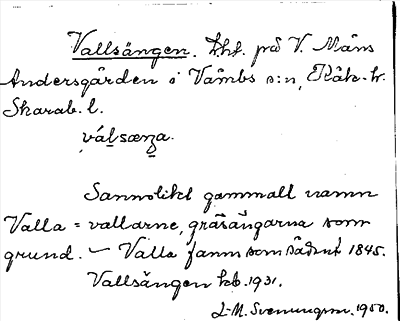 Vallsängen. t.hf. på V. Måns
Andersgården i Våmbs s:n, Kåk. hr.
Skarab. l.
válsæŋa.
Sannolikt gammalt namn
Valla = vallarne, gräsängarna som
grund. – Valla fanns som sådant 1845.
Vallsängen kb. 1931.
L-M. Svenungson. 1950.